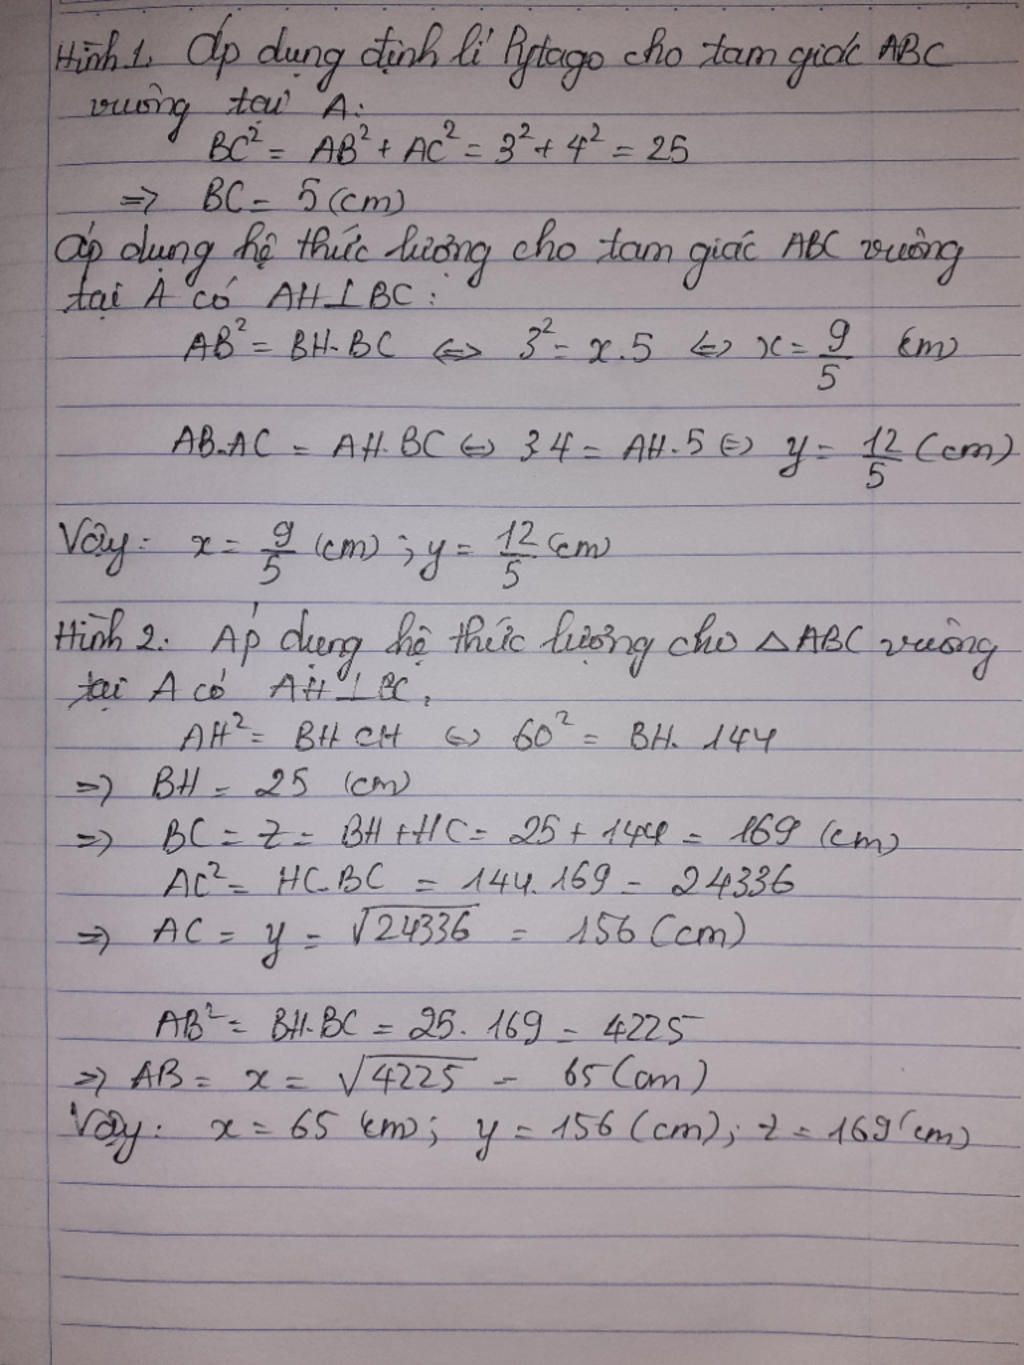 Hình 1. Áp dụng định lí Pytago cho tam giác ABC
vuông tại A:
BC² = AB² + AC² = 3² + 4² = 25
=> BC = 5 (cm)
Áp dụng hệ thức lượng cho tam giác ABC vuông
tại A có AH⊥BC:
AB² = BH.BC <=> 3² = x.5 <=> x = 9/5 (cm)
AB.AC = AH.BC <=> 3.4 = AH.5 <=> y = 12/5 (cm)
Vậy: x = 9/5 (cm); y = 12/5 (cm)
Hình 2. Áp dụng hệ thức lượng cho △ABC vuông
tại A có AH⊥BC.
AH² = BH.CH <=> 60² = BH. 144
=> BH = 25 (cm)
=> BC = z = BH + HC = 25 + 144 = 169 (cm)
AC² = HC.BC = 144.169 = 24336
=> AC = y = √24336 = 156 (cm)
AB² = BH.BC = 25.169 = 4225
=> AB = x = √4225 = 65 (cm)
Vậy: x = 65 (cm); y = 156 (cm); z = 169 (cm)